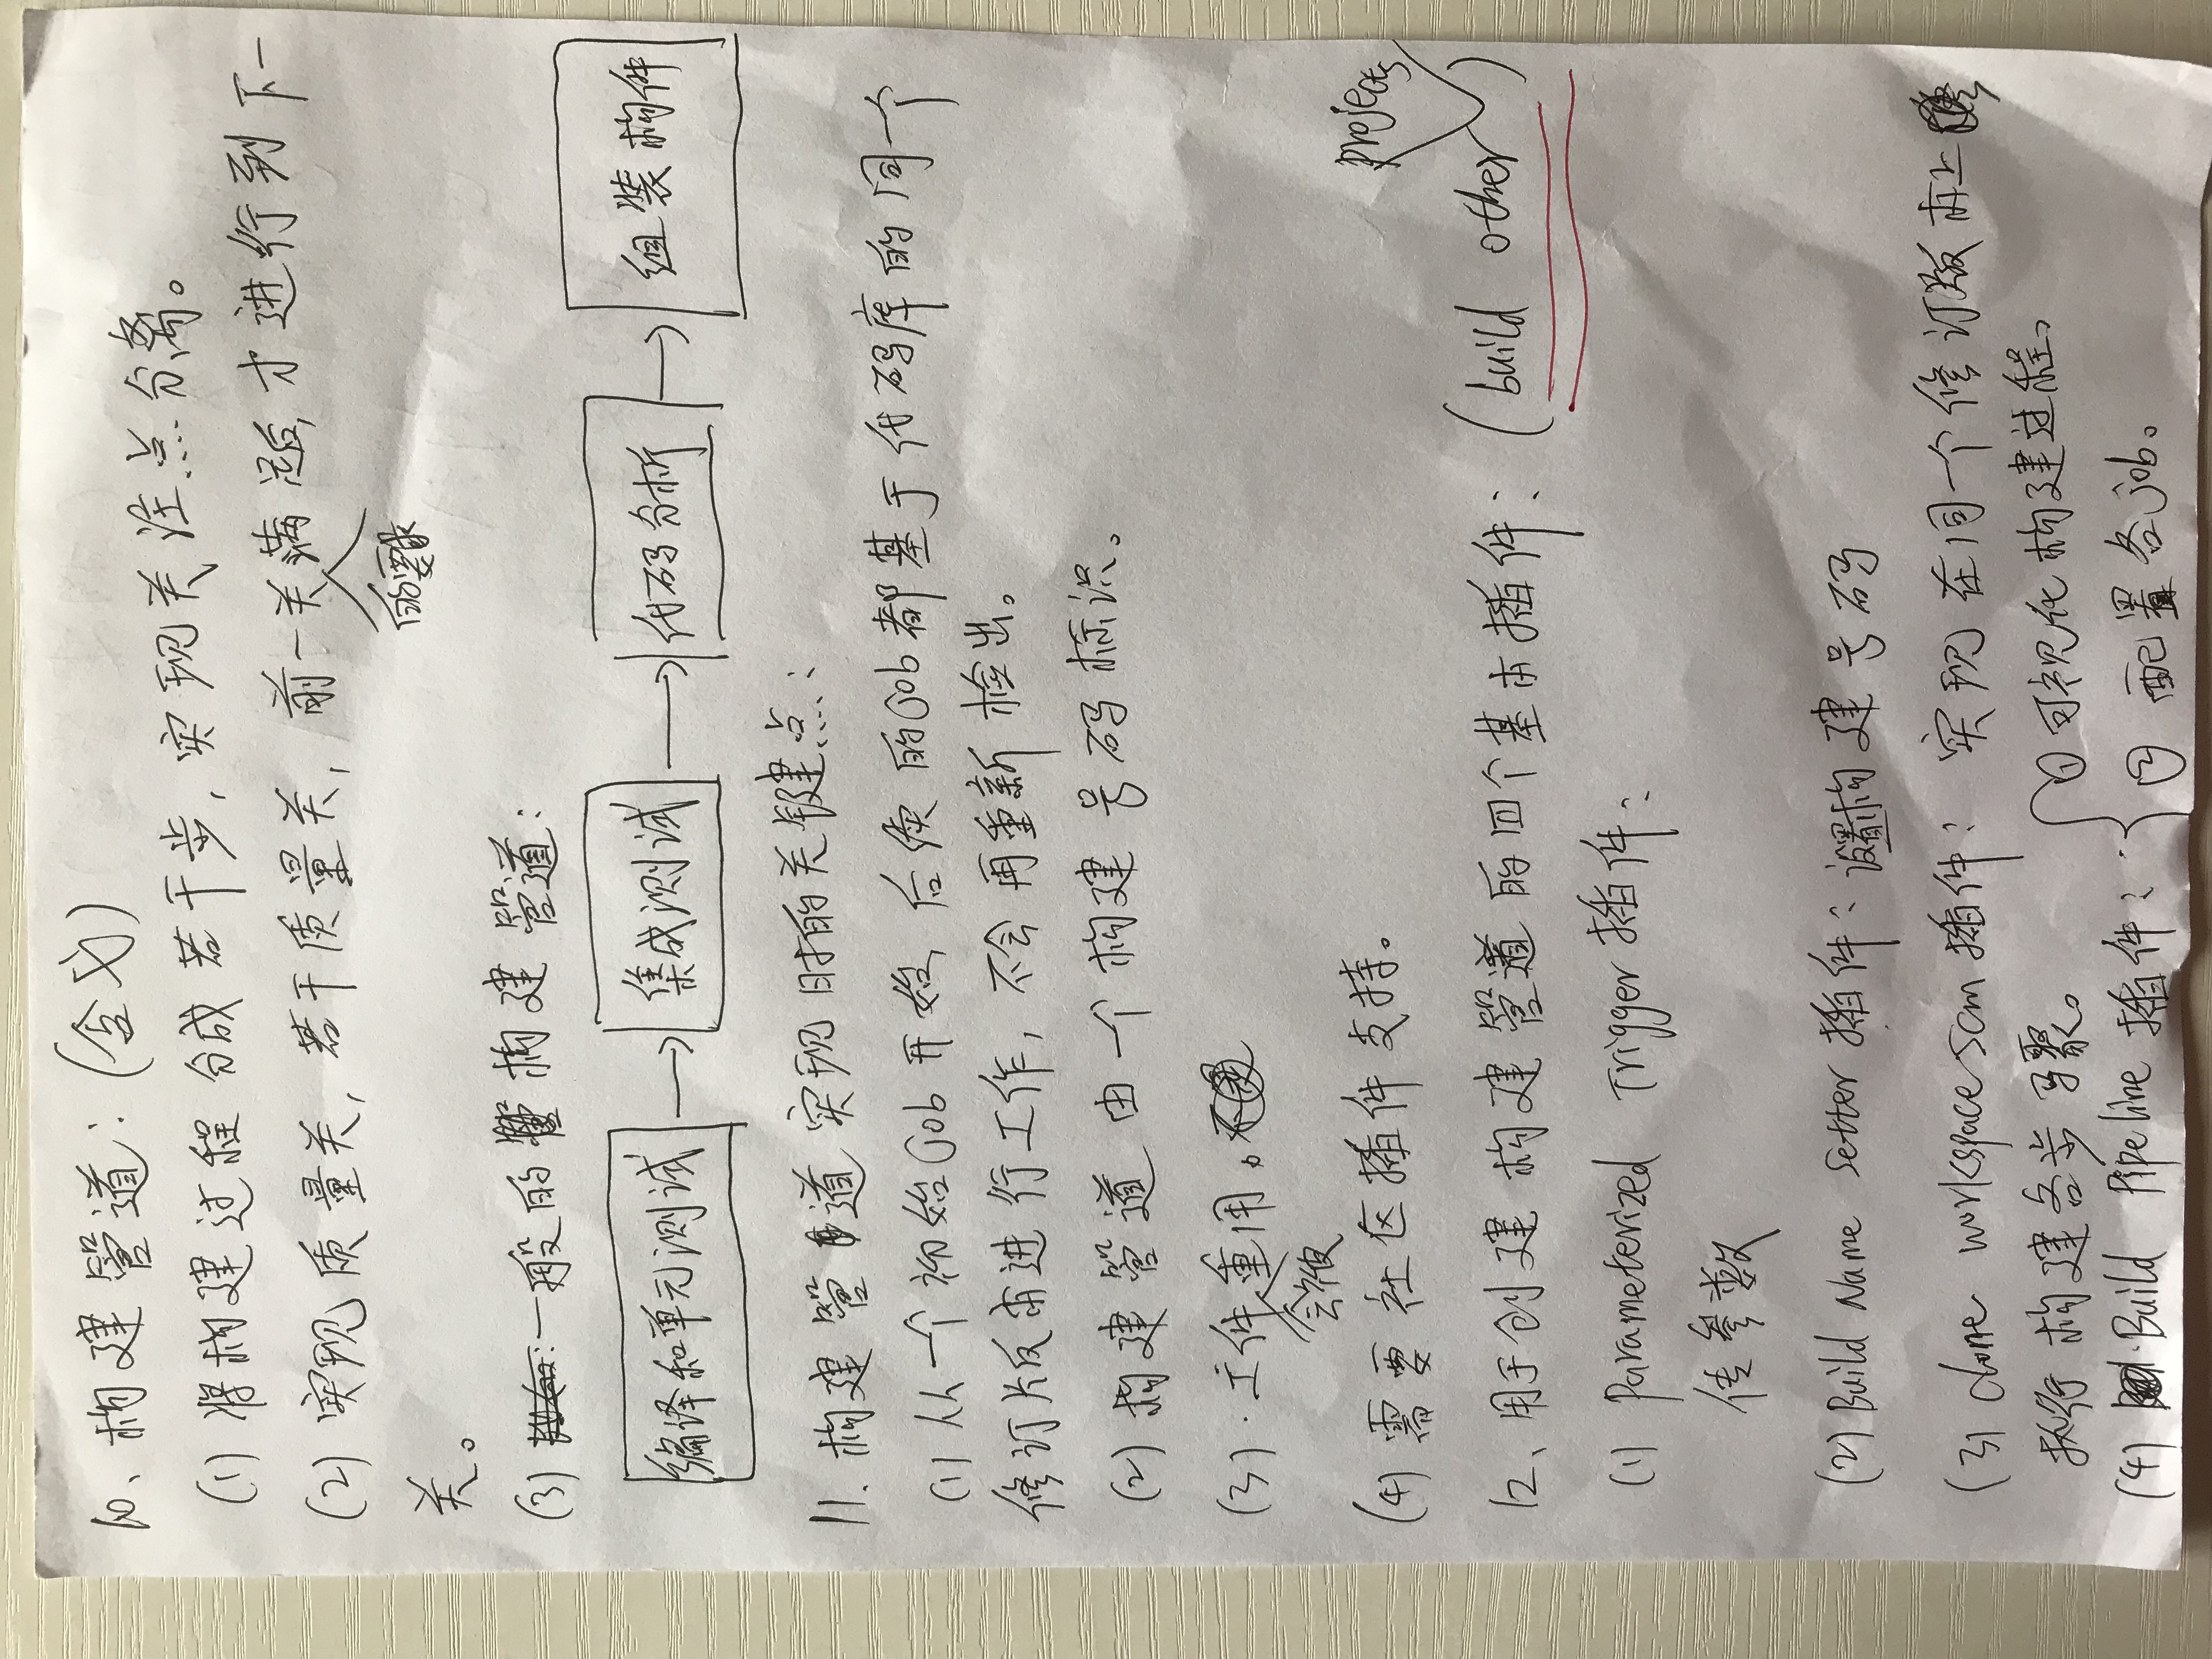 10、构建管道：(含义)
(1) 将构建过程分成若干步，实现关注点分离。
(2) 实现质量关，若干质量关，前一关的要求满足后，才进行到下一
关。
(3) 一般的构建管道：
编译和单元测试 → 集成测试 → 代码分析 → 组装构件
11. 构建管道实现时的关键点：
(1) 从一个初始job开始，后续的job都基于代码库的同一个
修订版本进行工作，不会再重新检出。
(2) 构建管道由一个构建号码标识。
(3) 工件会被重用。
(4) 需要社区插件支持。
12、用于创建构建管道的四个基本插件：(build other projects)
(1) Parameterized Trigger 插件：
传参数
(2) Build Name Setter 插件：设置构建号码
(3) clone workspace scm 插件：实现在同一个修订版本上
执行构建各步骤。
(4) Build Pipeline 插件：
① 可视化构建过程。
② 配置各job。